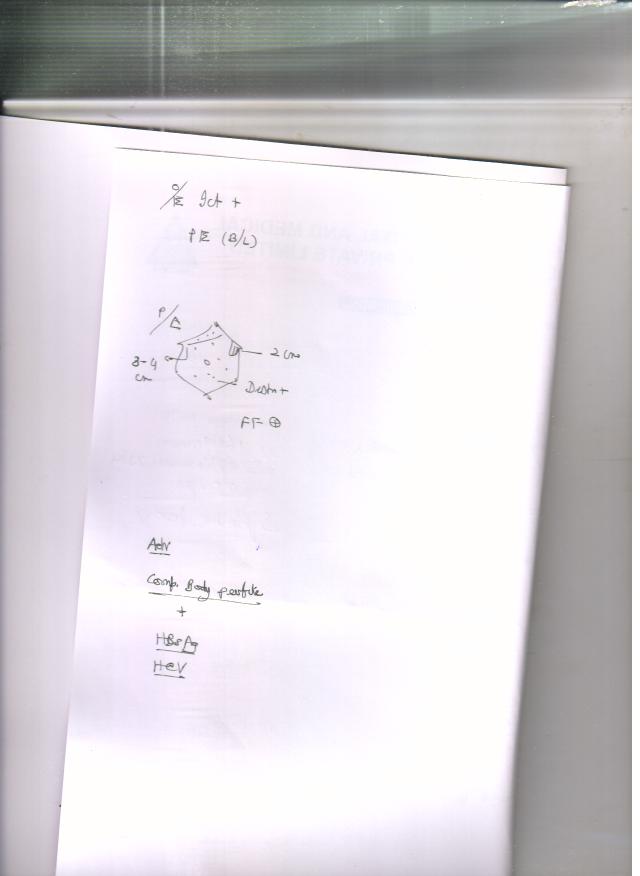 O/E Ict +
PE (B/L)
P/A
3-4 cm
2 cm
Distn +
FF- ⊕
Adv
Comp. Body profile
+
HBsAg
HCV